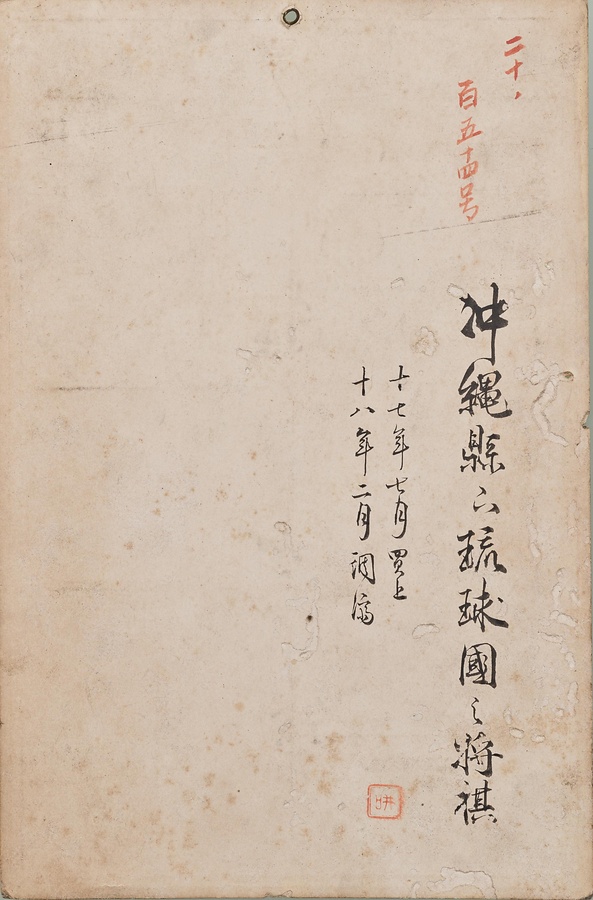 二十、
百五十四号
沖縄縣下琉球國之将棋
十七年七月買上
十八年二月調済